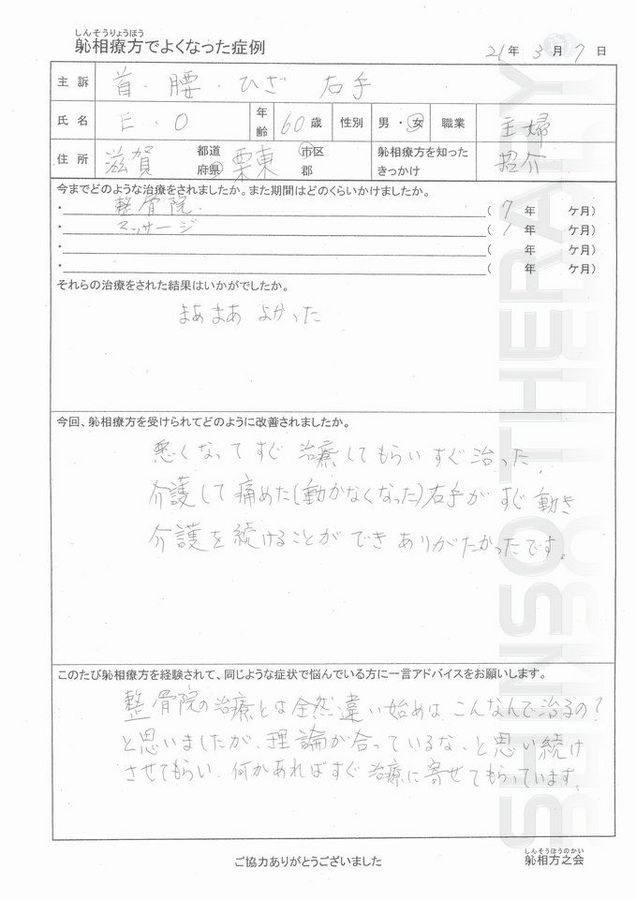 しんそうりょうほう
躳相療方でよくなった症例
21年 3月 7日
主訴 首・腰・ひざ 右手
氏名 E・O 年齢 60歳 性別 男・女 職業 主婦
住所 滋賀 都道府県 栗東 市区郡 躳相療方を知ったきっかけ 招介
今までどのような治療をされましたか。また期間はどのくらいかけましたか。
・整骨院 (7年 ケ月)
・マッサージ (1年 ケ月)
・ (年 ケ月)
・ (年 ケ月)
それらの治療をされた結果はいかがでしたか。
まあまあ よかった
今回、躳相療方を受けられてどのように改善されましたか。
悪くなってすぐ 治療してもらい すぐ治った。
介護して痛めた(動かなくなった)右手が すぐ動き
介護を続けることが でき ありがたかったです。
このたび躳相療方を経験されて、同じような症状で悩んでいる方に一言アドバイスをお願いします。
整骨院の治療とは全然違い始めは、こんなんで治るの?
と思いましたが、理論が合っているな、と思い続け
させてもらい、何かあればすぐ 治療に寄せてもらっています。
SHINSO THERAPY
ご協力ありがとうございました
しんそうほうのかい
躳相方之会